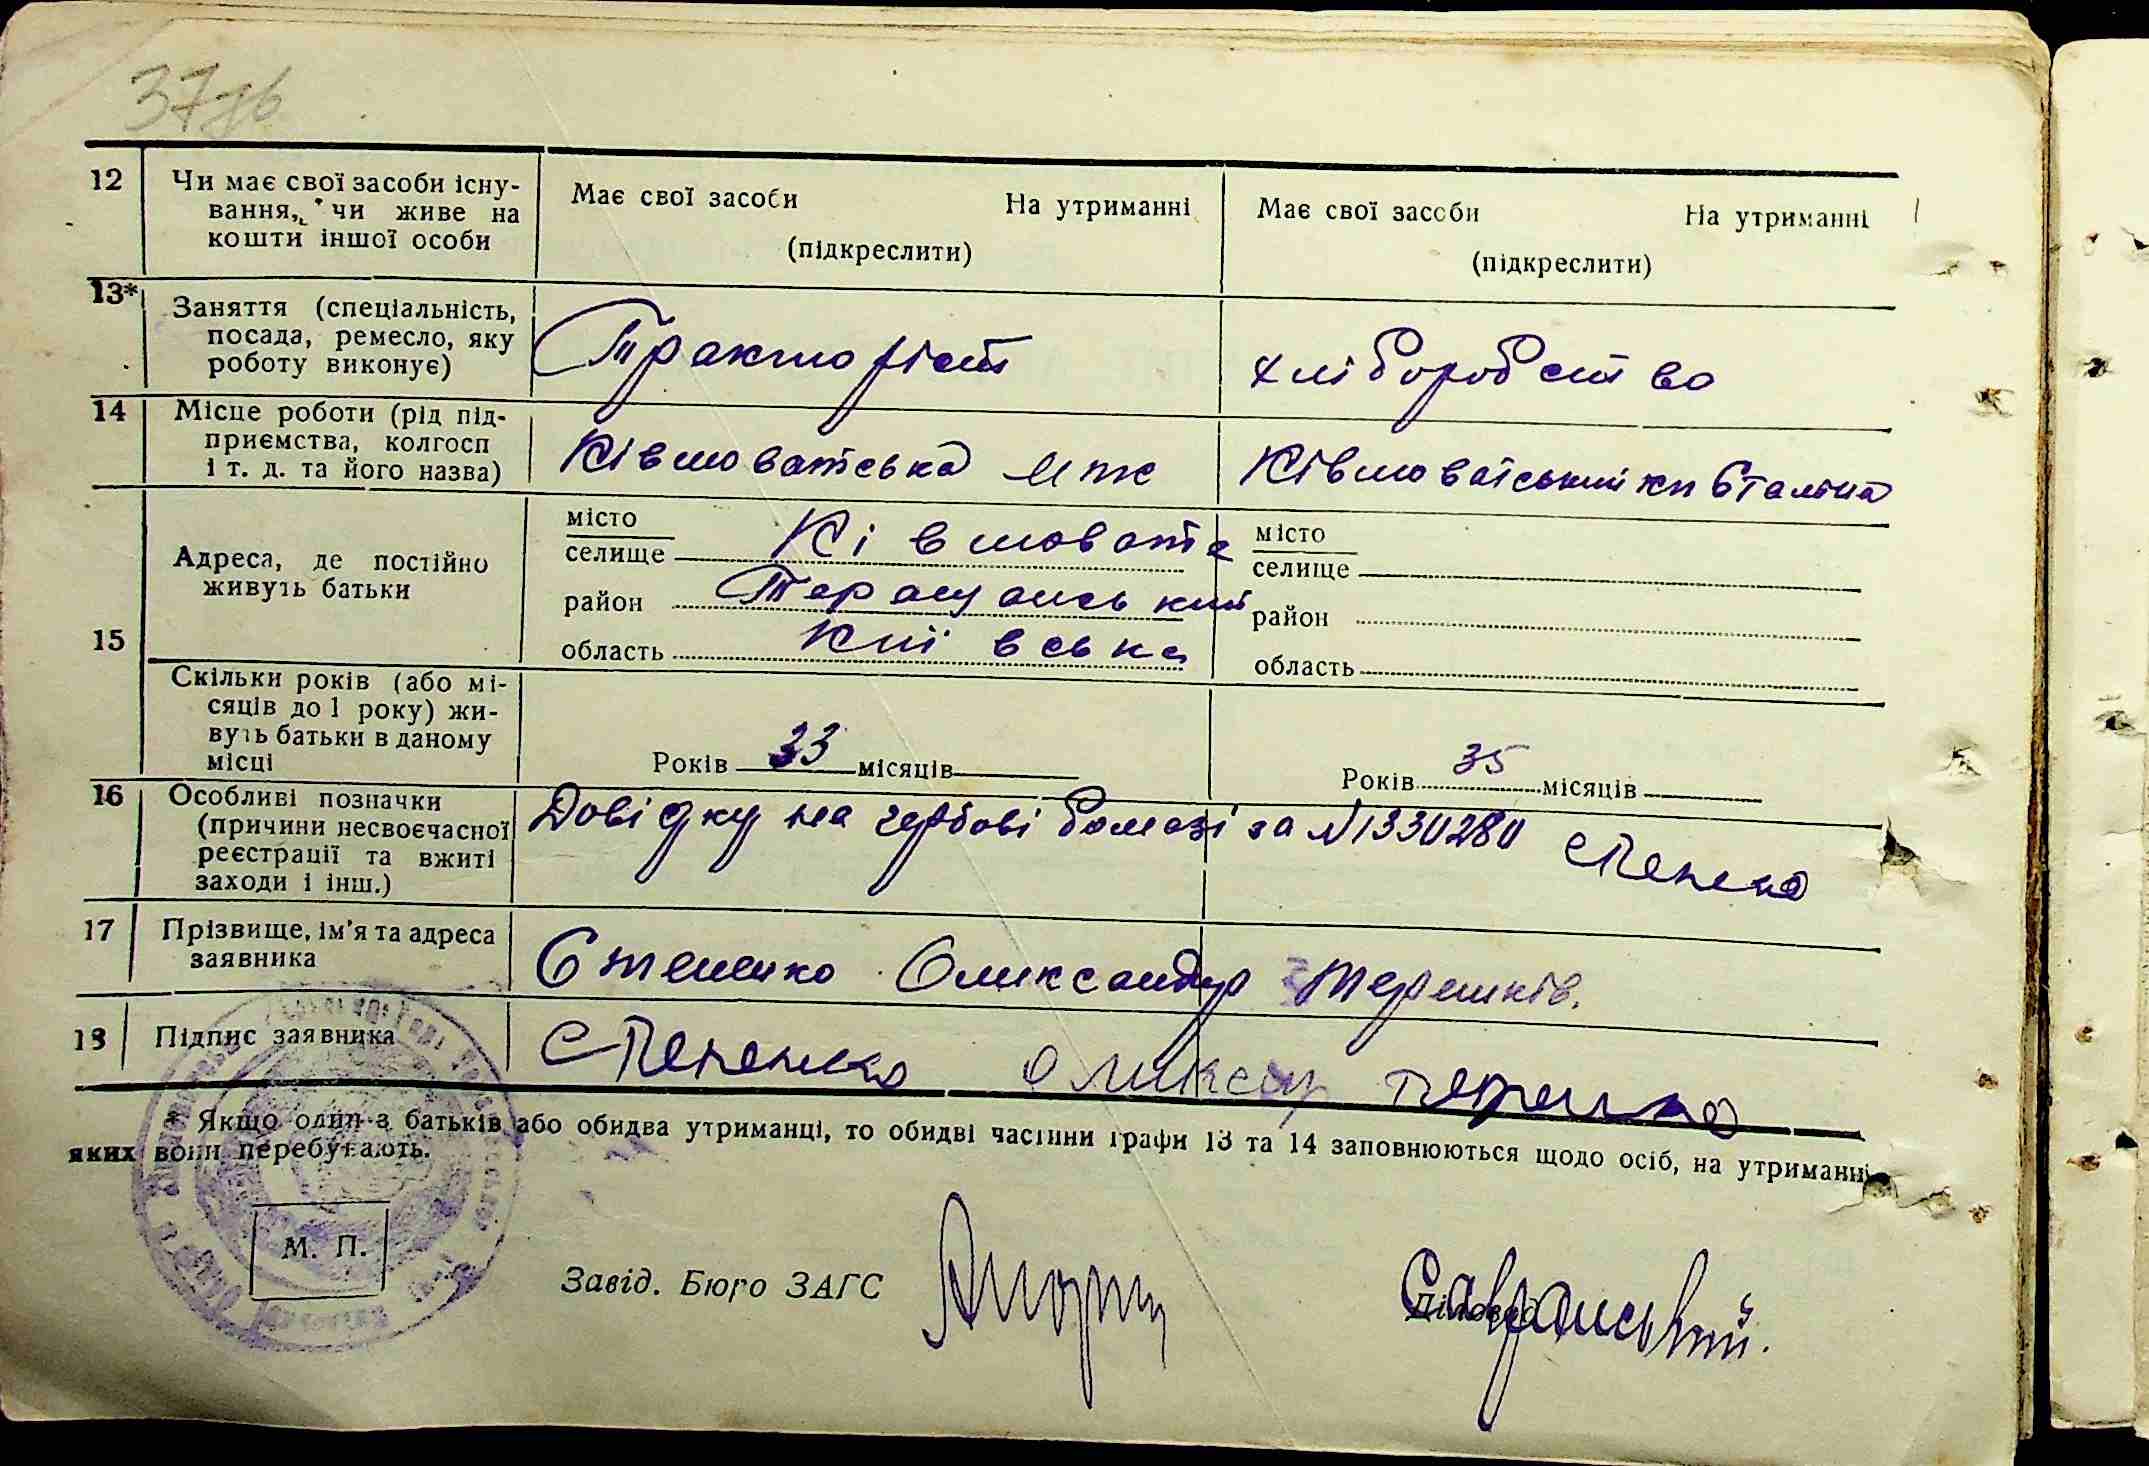 37зв
12 Чи має свої засоби існу-
вання, чи живе на
кошти іншої особи
Має свої засоби На утриманні
(підкреслити)
Має свої засоби На утриманні
(підкреслити)
13* Заняття (спеціальність,
посада, ремесло, яку
роботу виконує)
Тракторіст
хліборобство
14 Місце роботи (рід під-
приємства, колгосп
і т. д. та його назва)
Ківшоватська мтс
Ківшоватський кп Сталіна
15 Адреса, де постійно
живуть батьки
місто
селище Ківшовата
район Таращанський
область Київська
місто
селище
район
область
Скільки років (або мі-
сяців до 1 року) жи-
вуть батьки в даному
місці
Років 33 місяців
Років 35 місяців
16 Особливі позначки
(причини несвоєчасної
реєстрації та вжиті
заходи і інш.)
Довідку на гербові бомазі за №1330280
17 Прізвище, ім'я та адреса
заявника
Степенко Олександр Терешків.
18 Підпис заявника
* Якщо один з батьків або обидва утриманці, то обидві частини графи 13 та 14 заповнюються щодо осіб, на утриманні
яких вони перебувають.
М. П.
Завід. Бюро ЗАГС
Діловод